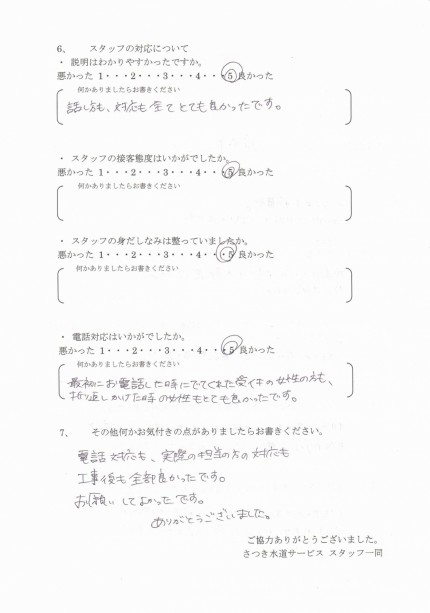 6、 スタッフの対応について
・ 説明はわかりやすかったですか。
悪かった 1・・・2・・・3・・・4・・・5 良かった
何かありましたらお書きください
話し方も、対応も全てとても良かったです。
・ スタッフの接客態度はいかがでしたか。
悪かった 1・・・2・・・3・・・4・・・5 良かった
何かありましたらお書きください
・ スタッフの身だしなみは整っていましたか。
悪かった 1・・・2・・・3・・・4・・・5 良かった
何かありましたらお書きください
・ 電話対応はいかがでしたか。
悪かった 1・・・2・・・3・・・4・・・5 良かった
何かありましたらお書きください
最初にお電話した時にでてくれた受付の女性の方も、
折り返しかけた時の女性もとても良かったです。
7、 その他何かお気付きの点がありましたらお書きください。
電話対応も、実際の担当の方の対応も
工事後も全部良かったです。
お願いしてよかったです。
ありがとうございました。
ご協力ありがとうございました。
さつき水道サービス スタッフ一同